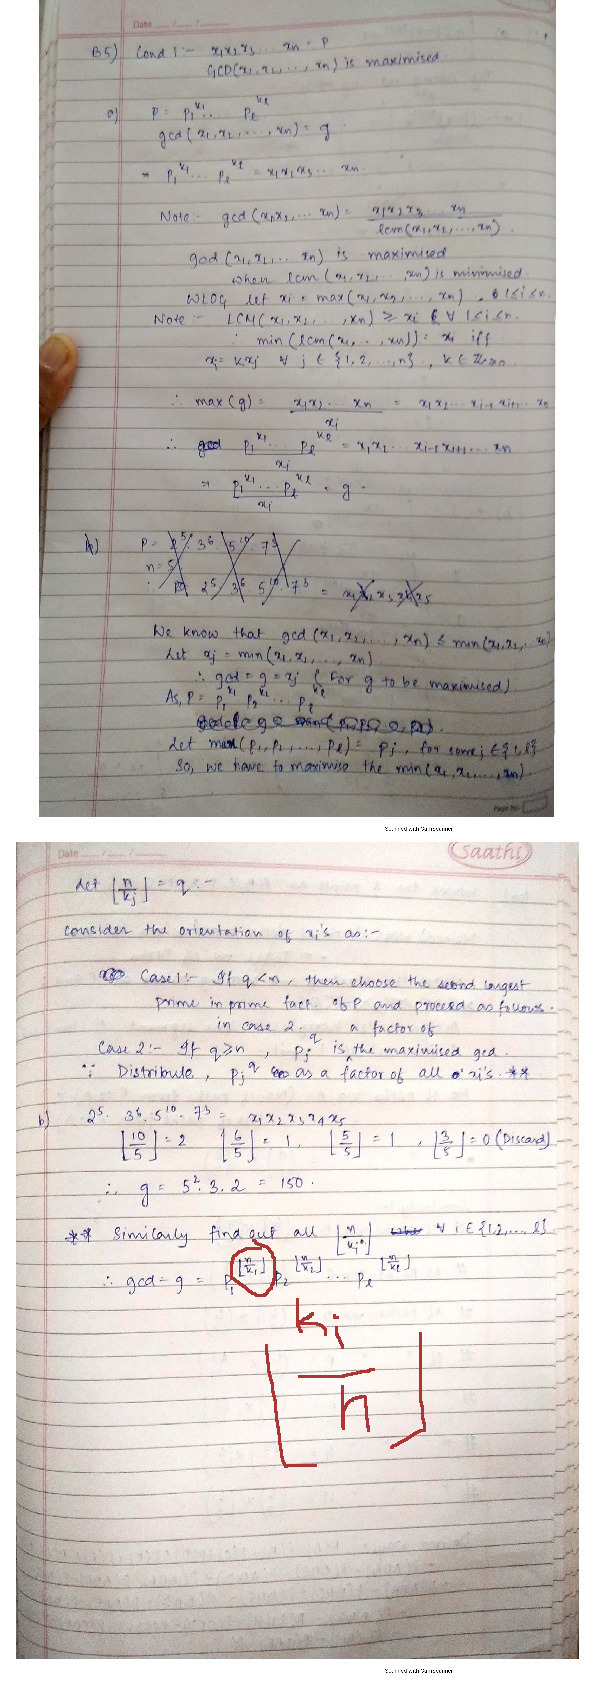 Date
B5) Cond 1:- x1x2x3 ... xn = P
GCD(x1,x2,..., xn) is maximised
a) P = p1^k1 ... pl^kl
gcd(x1,x2,...,xn) = g
⇒ p1^k1 ... pl^kl = x1x2x3 ... xn.
Note:- gcd (x1,x2,... xn) = x1x2x3 ... xn / lcm(x1,x2,...,xn)
gcd (x1,x2,... xn) is maximised
when lcm (x1,x2,... xn) is minimised.
WLOG let xi = max(x1,x2,..., xn), 1≤i≤n.
Note:- LCM(x1,x2,...,xn) ≥ xi ∀ 1≤i≤n.
∴ min (lcm(x1,..,xn)) = xi iff
xi = kxj ∀ j ∈ {1,2,...,n}, k ∈ Z≥0
∴ max(g) = x1x2... xn / xi = x1x2... xi-1 xi+1... xn
∴ p1^k1 ... pl^kl / xi = x1x2... xi-1xi+1... xn
⇒ p1^k1 ... pl^kl / xi = g
P = 2^5. 3^6. 5^10. 7^3
n = 5
∴ 2^5 . 3^6 . 5^10 . 7^3 = x1x2x3x4x5
We know that gcd (x1,x2,..., xn) ≤ min(x1,x2,.. xn)
Let xj = min(x1,x2,..., xn)
∴ gcd = g = xj (For g to be maximised)
As, P = p1^k1 p2^k2 ... pl^kl
Let max(p1,p2,..., pl) = pj, for some j ∈ {1,l}
So, we have to maximise the min(x1,x2,...,xn).
Page No.
Scanned with CamScanner
Date
Saathi
Let ⌊n/kj⌋ = q :-
Consider the orientation of xi's as:-
Case 1:- If q<n, then choose the second largest
prime in prime fact. of P and proceed as follows.
in case 2. a factor of
Case 2:- If q≥n, pj^q is ^ the maximised gcd.
∵ Distribute, pj^q as a factor of all xi's. **
b) 2^5. 3^6. 5^10. 7^3 = x1x2x3x4x5
⌊10/5⌋ = 2 ⌊6/5⌋ = 1, ⌊5/5⌋ = 1, ⌊3/5⌋ = 0 (Discard)
∴ g = 5^2. 3. 2 = 150.
** Similarly find out all ⌊n/ki⌋ ∀ i ∈ {1,2,... l}
∴ gcd = g = p1^⌊n/k1⌋ p2^⌊n/k2⌋ ... pl^⌊n/kl⌋
⌊ki/n⌋
Scanned with CamScanner